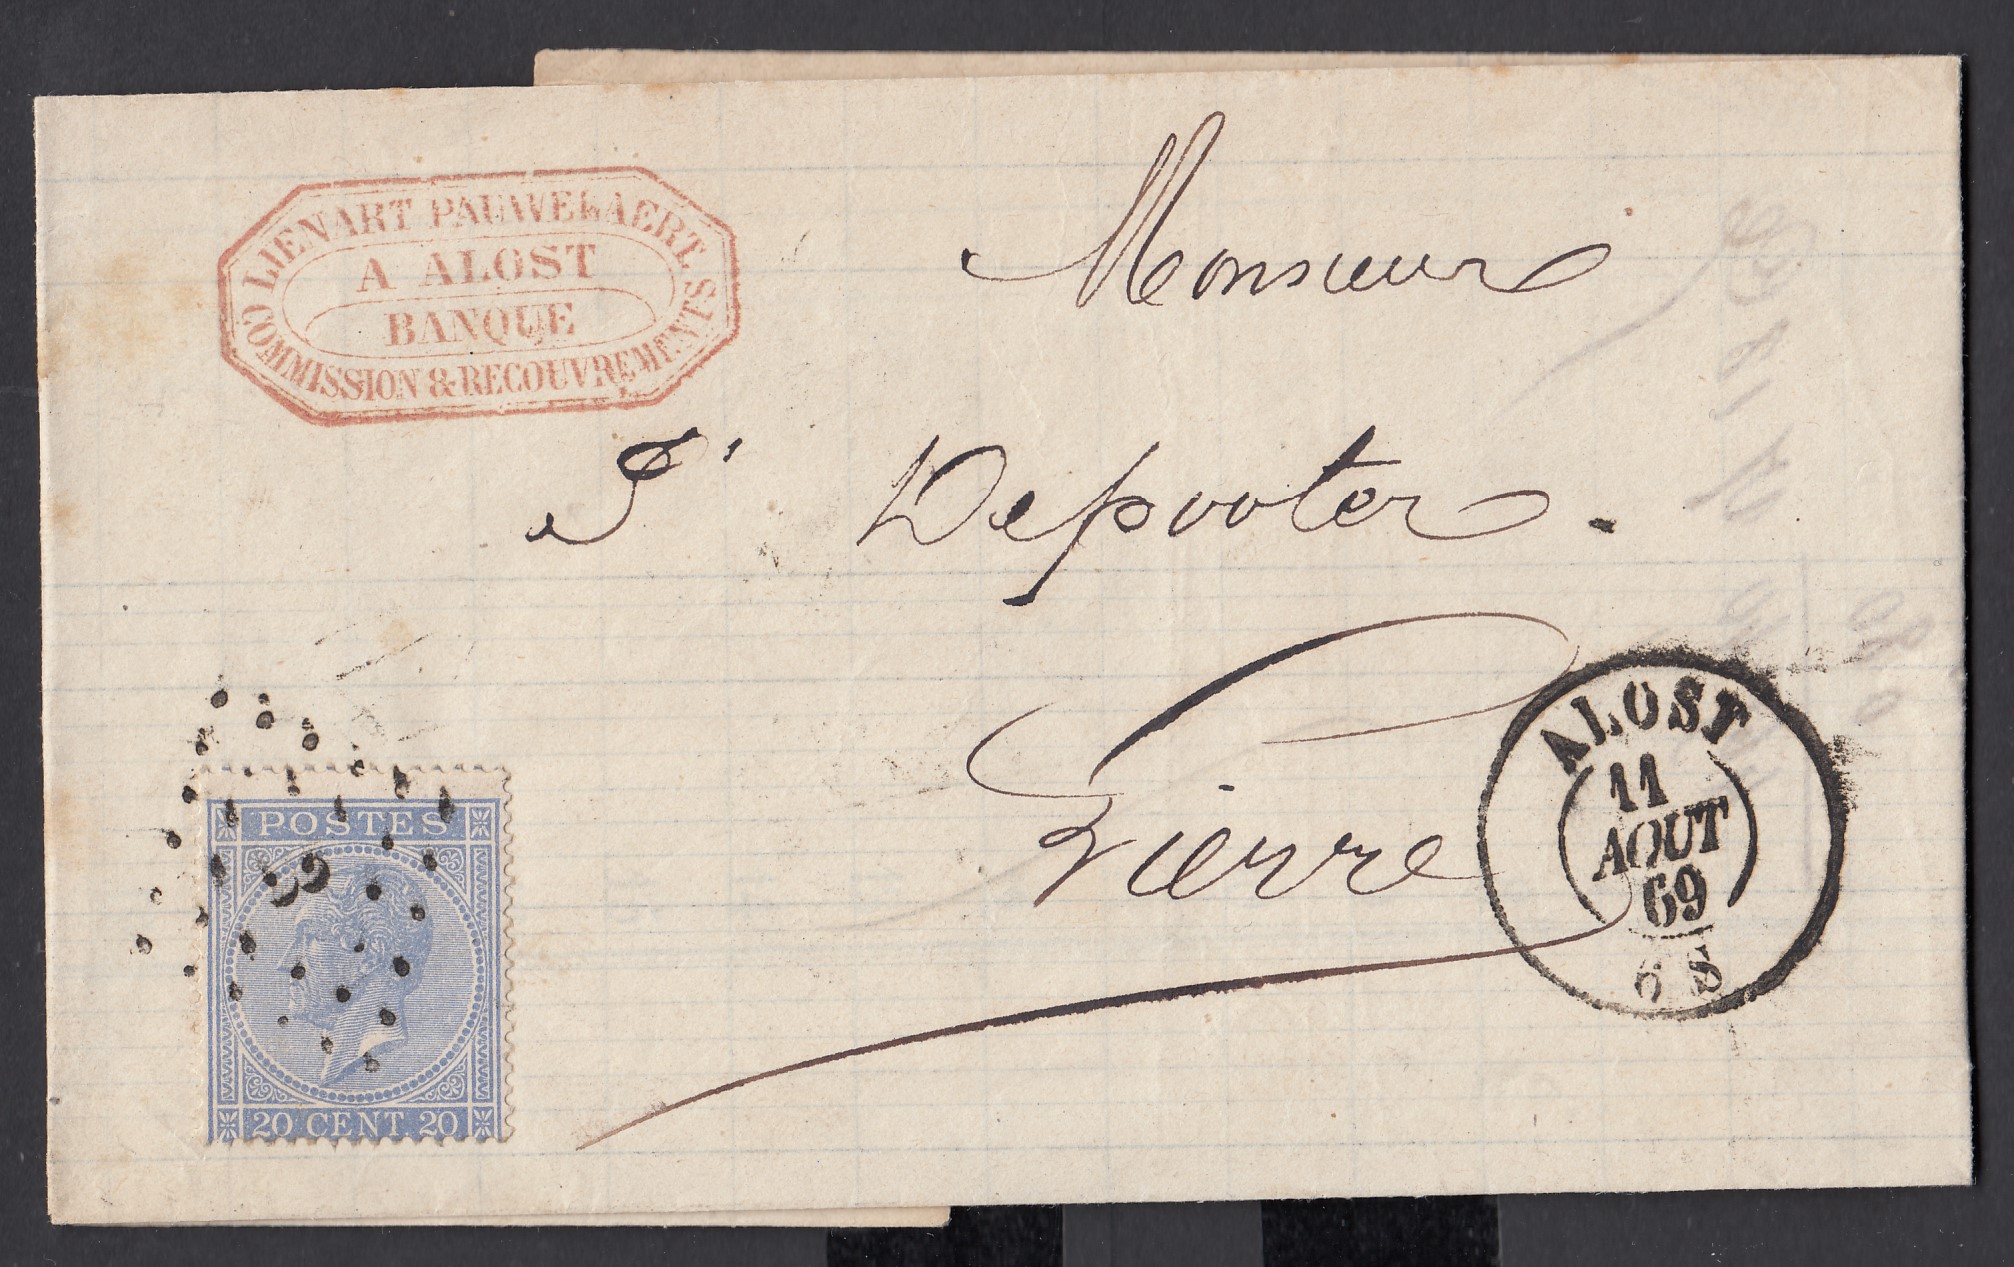 LIENART PAUWELAERT.
A ALOST
BANQUE
COMMISSION & RECOUVREMENTS
Monsieur
Depooter.
Lierre
ALOST
11
AOUT
69
6 S
POSTES
20 CENT. 20